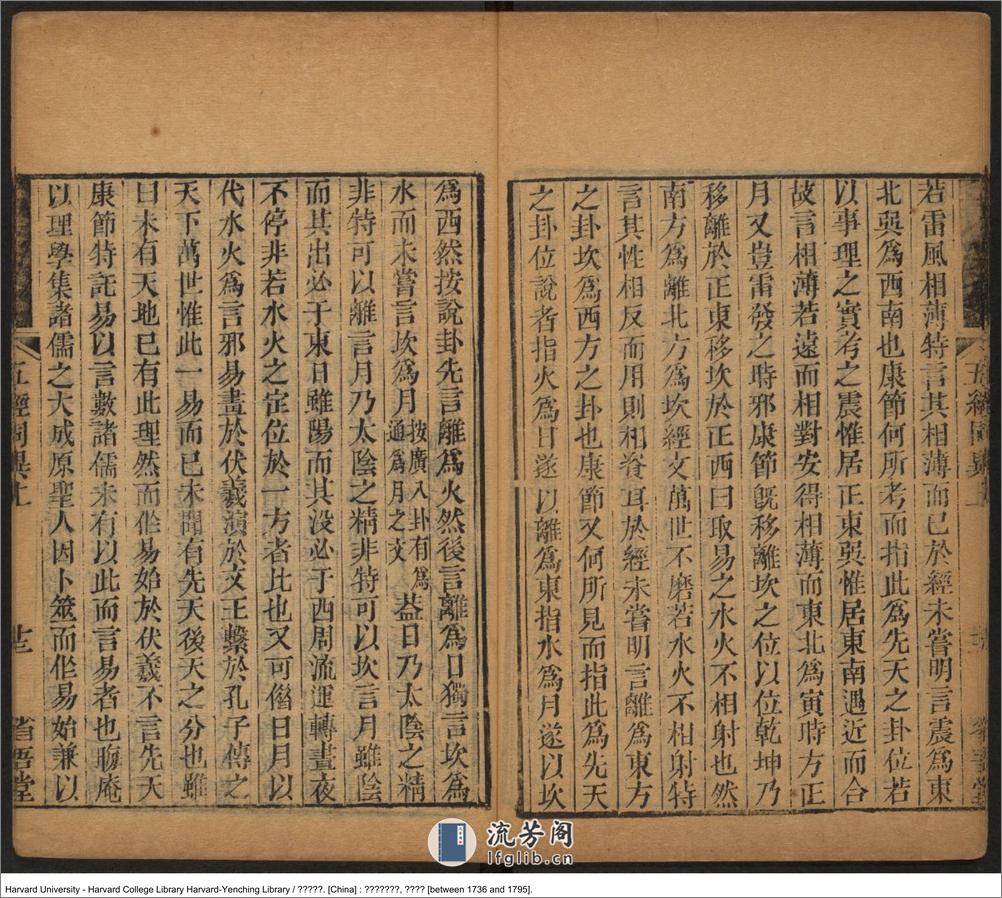 若雷風相薄特言其相薄而已於經未嘗明言震爲東
北巽爲西南也康節何所考而指此爲先天之卦位若
以事理之實考之震惟居正東巽惟居東南遇近而合
故言相薄若遠而相對安得相薄而東北爲寅時方正
月又豈雷發之時邪康節旣移離坎之位以位乾坤乃
移離於正東移坎於正西曰取易之水火不相射也然
南方爲離北方爲坎經文萬世不磨若水火不相射特
言其性相反而用則相資耳於經未嘗明言離爲東方
之卦坎爲西方之卦也康節又何所見而指此爲先天
之卦位說者指火爲日遂以離爲東指水爲月遂以坎
爲西然按說卦先言離爲火然後言離爲日獨言坎爲
水而未嘗言坎爲月按廣八卦有爲通爲月之文益日乃太陰之精
非特可以離言月乃太陰之精非特可以坎言月雖陰
而其出必于東日雖陽而其没必于西周流運轉晝夜
不停非若水火之定位於一方者比也又可偕日月以
代水火爲言邪易畫於伏羲演於文王繫於孔子傳之
天下萬世惟此一易而已未聞有先天後天之分也雖
曰未有天地已有此理然而作易始於伏羲不言先天
康節特託易以言數諸儒未有以此而言易者也晦庵
以理學集諸儒之大成原聖人因卜筮而作易始兼以
五經同異上
省吾堂
流芳阁
lfglib.cn
Harvard University - Harvard College Library Harvard-Yenching Library / ?????. [China] : ???????, ???? [between 1736 and 1795].